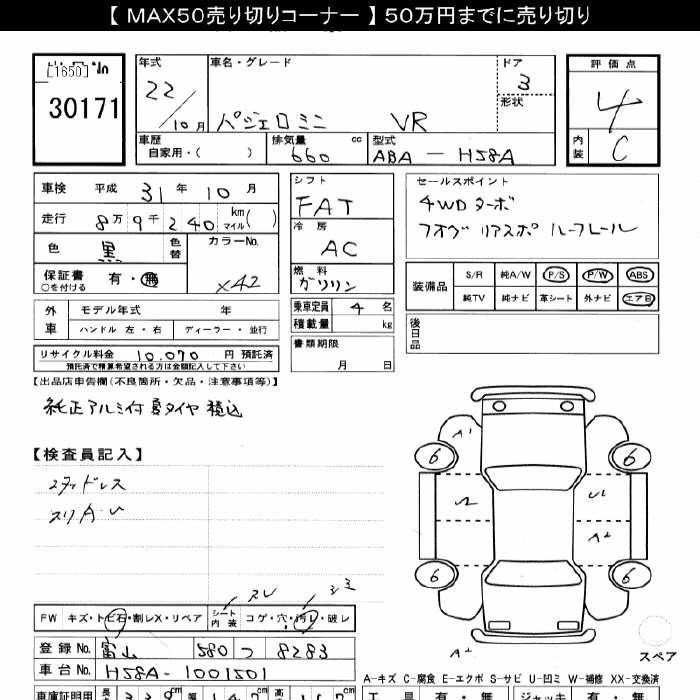 【 MAX50売り切りコーナー 】 50万円までに売り切り
[1650]
30171
年式
22/10 月
車名・グレード
パジェロミニ VR
ドア
3
形状
評 価 点
4
内装
C
車歴
自家用・( )
排気量 cc
660
型式
ABA - H58A
車検 平成 31 年 10 月
走行 8万 9千 240 km マイル( )
色 黒
色替
カラーNo.
X42
保証書 有・無
○を付ける
シフト
FAT
冷 房
AC
燃 料
ガソリン
乗車定員 4 名
積載量 kg
書類期限
月 日
セールスポイント
4WD ターボ
フオグ リアスポ ルーフレール
装備品
S/R 純A/W P/S P/W ABS
純TV 純ナビ 革シート 外ナビ エアB
後日品
外車
モデル年式 年
ハンドル 左・右 ディーラー・並行
リサイクル料金 10,070 円 預託済
預託済で精算希望される方は金額記入して下さい
【出品店申告欄(不良箇所・欠品・注意事項等)】
純正アルミ付夏タイヤ積込
【検査員記入】
スタッドレス
スリA・U
スレ
シミ
FW キズ・トビ石・割レX・リペア
シート内装
コゲ・穴・汚レ・破レ
登録 No. 富山 580 つ 8283
車台 No. H58A-1001501
A¹
6
6
U¹
A²
6
6
A²
スペア
A-キズ C-腐食 E-エクボ S-サビ U-凹ミ W-補修 XX-交換済
車庫証明用
工 具 有・無 ジャッキ 有・無